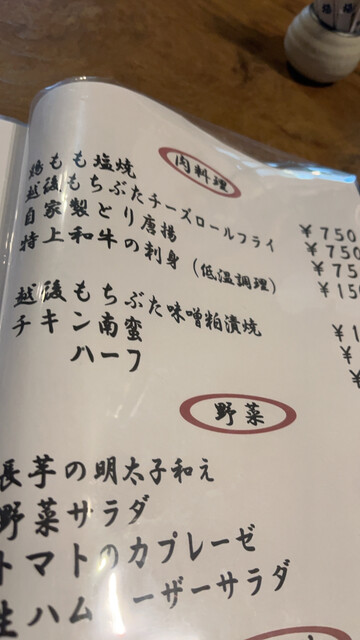 肉料理
鶏もも塩焼 ¥750
越後もちぶたチーズロールフライ ¥750
自家製とり唐揚 ¥75
特上和牛の刺身(低温調理) ¥15
越後もちぶた味噌粕漬焼 ¥1
チキン南蛮 ¥
ハーフ ¥
野菜
長芋の明太子和え
野菜サラダ
トマトのカプレーゼ
生ハム ーザーサラダ